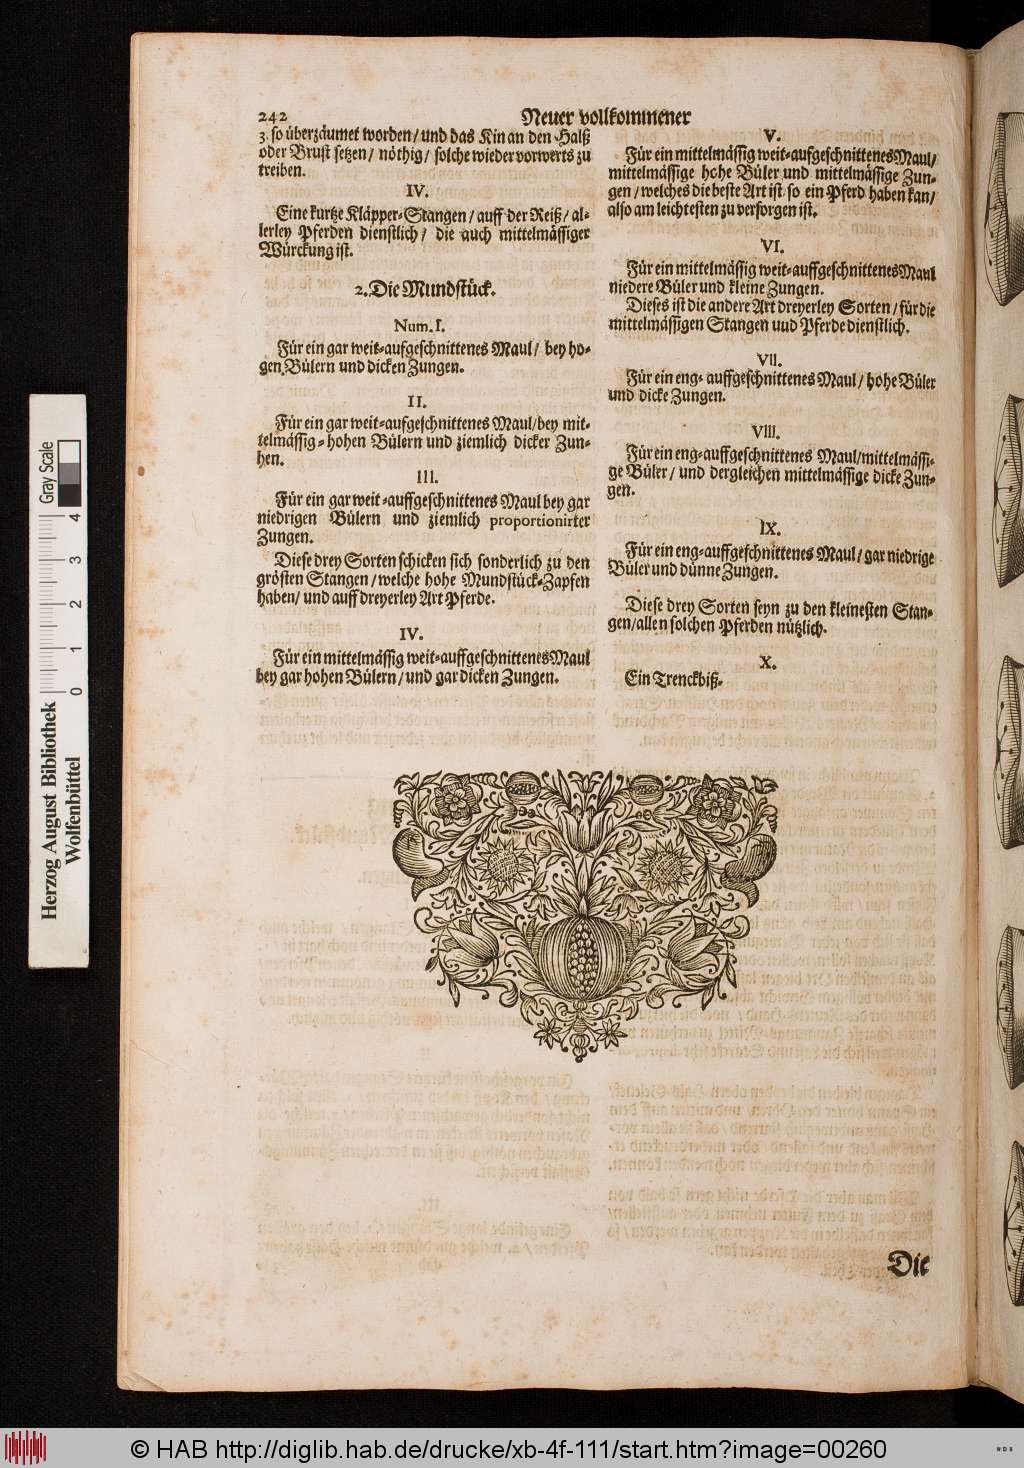 242 Neuer vollkommener
3. so überzäumet worden/ und das Kin an den Halß
oder Brust setzen/ nöthig/ solche wieder vorwerts zu
treiben.
IV.
Eine kurtze Kläpper-Stangen/ auff der Reiß/ al-
lerley Pferden dienstlich/ die auch mittelmässiger
Würckung ist.
2. Die Mundstück.
Num. I.
Für ein gar weit-aufgeschnittenes Maul/ bey ho-
gen Bülern und dicken Zungen.
II.
Für ein gar weit-aufgeschnittenes Maul/bey mit-
telmässig-hohen Bülern und ziemlich dicker Zun-
hen.
III.
Für ein gar weit-auffgeschnittenes Maul bey gar
niedrigen Bülern und ziemlich proportionirter
Zungen.
Diese drey Sorten schicken sich sonderlich zu den
grösten Stangen/welche hohe Mundstück-Zapfen
haben/ und auff dreyerley Art Pferde.
IV.
Für ein mittelmässig weit-auffgeschnittenes Maul
bey gar hohen Bülern/und gar dicken Zungen.
V.
Für ein mittelmässig weit-aufgeschnittenes Maul/
mittelmässige hohe Büler und mittelmässige Zun-
gen/welches die beste Art ist so ein Pferd haben kan/
also am leichtesten zu versorgen ist.
VI.
Für ein mittelmässig weit-auffgeschnittenes Maul
niedere Büler und kleine Zungen.
Dieses ist die andere Art dreyerley Sorten/für die
mittelmässigen Stangen uud Pferde dienstlich.
VII.
Für ein eng-auffgeschnittenes Maul/ hohe Büler
und dicke Zungen.
VIII.
Für ein eng-auffgeschnittenes Maul/mittelmässi-
ge Büler/ und dergleichen mittelmässige dicke Zun-
gen.
IX.
Für ein eng-auffgeschnittenes Maul/gar niedrige
Büler und dünne Zungen.
Diese drey Sorten seyn zu den kleinesten Stan-
gen/allen solchen Pferden nützlich.
X.
Ein Trenckbiß.
Die
Gray Scale
0 1 2 3 4
Herzog August Bibliothek
Wolfenbüttel
© HAB http://diglib.hab.de/drucke/xb-4f-111/start.htm?image=00260